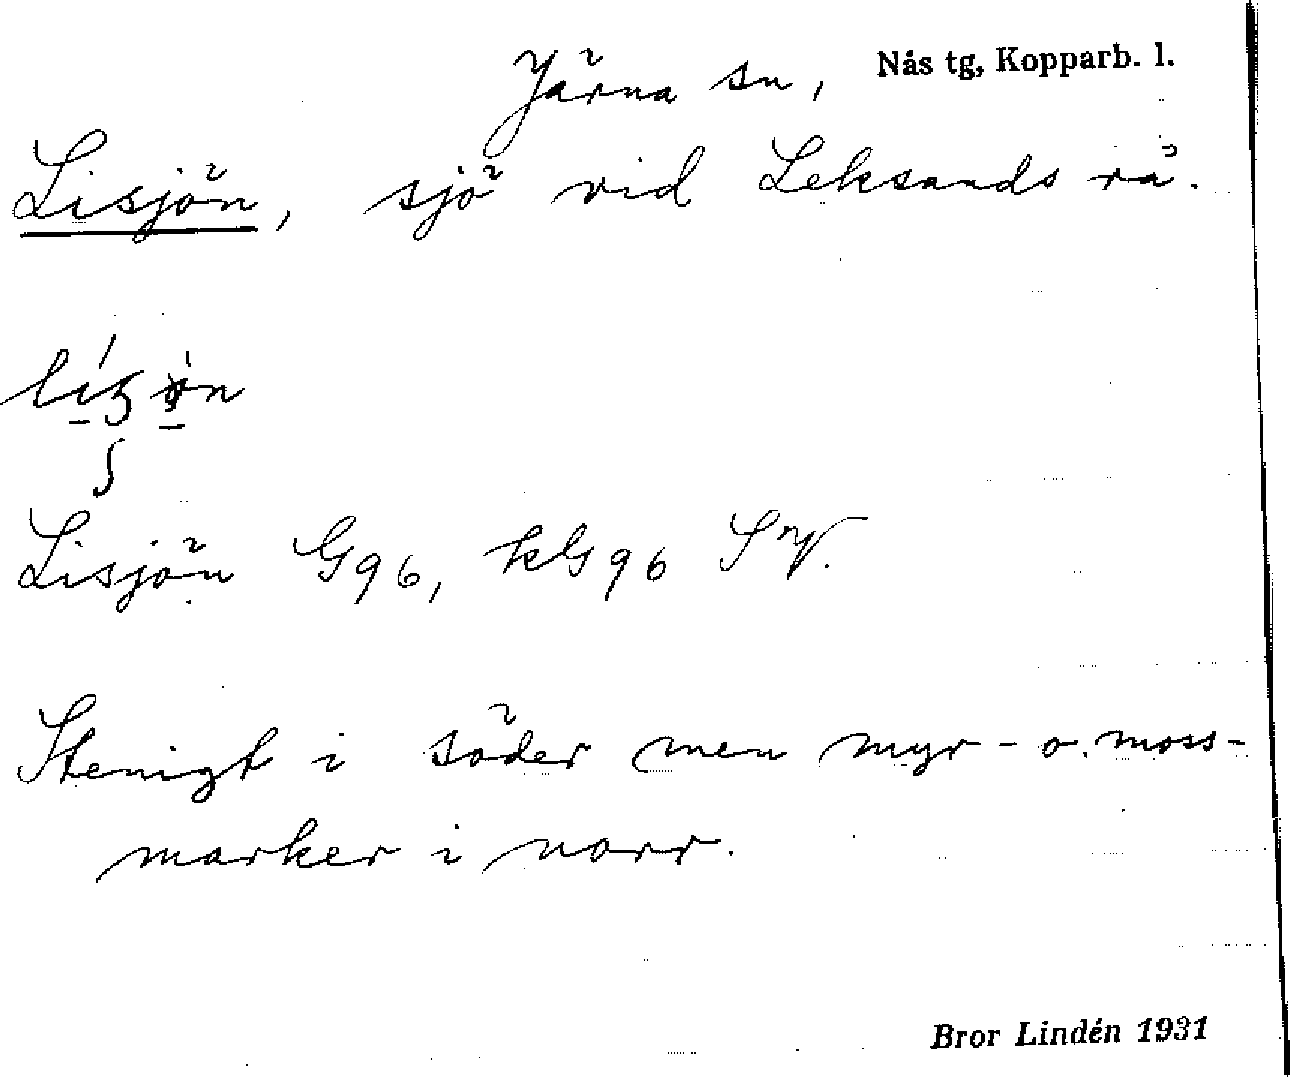 Järna sn, Nås tg, Kopparb. l.
Lisjön, sjö vid Leksands rå.
Lisjön G96, kG96 SV.
Stenigt i söder men myr- o. moss-
marker i norr.
Bror Lindén 1931